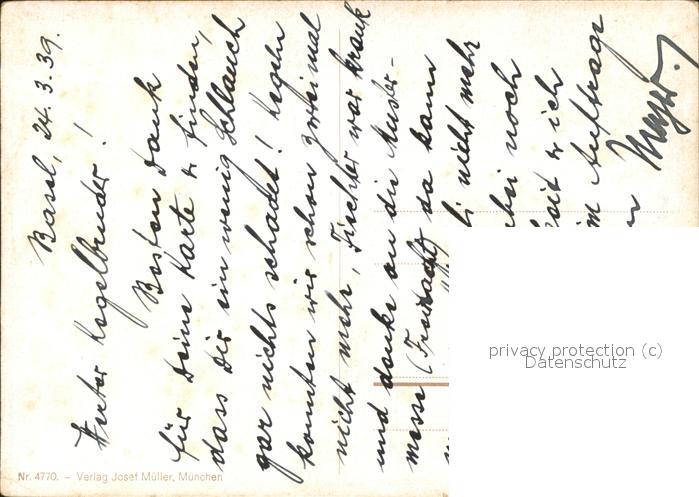 Basel, 24.3.39.
Werter Kegelbruder!
Besten Dank
für Deine Karte & finden,
dass Dir ein wenig Schlauch
gar nichts schadet! Kegeln
konnten wir schon zweimal
nicht mehr, Fischler war krank
und danke an die Muster-
messe (Freinacht) da kann
nicht mehr
bei noch
&ich
im Auftrage
Meyer.
Nr. 4770. – Verlag Josef Müller, München
privacy protection (c)
Datenschutz